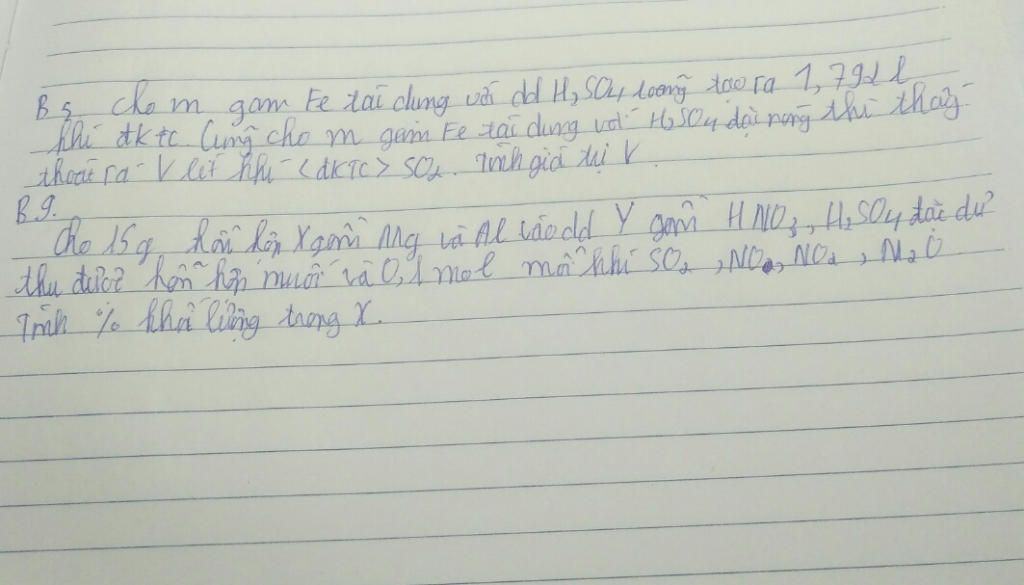 B5. Cho m gam Fe tác dụng với dd H2SO4 loãng tạo ra 1,792 l
khí đktc. Cũng cho m gam Fe tác dụng với H2SO4 đặc nóng thì thấy
thoát ra V lít khí <đktc> SO2. Tính giá trị V.
B9.
Cho 15g hỗn hợp X gồm Mg và Al vào dd Y gồm HNO3, H2SO4 đặc dư
thu được hỗn hợp muối và 0,1 mol mỗi khí SO2, NO, NO2, N2O
Tính % khối lượng trong X.